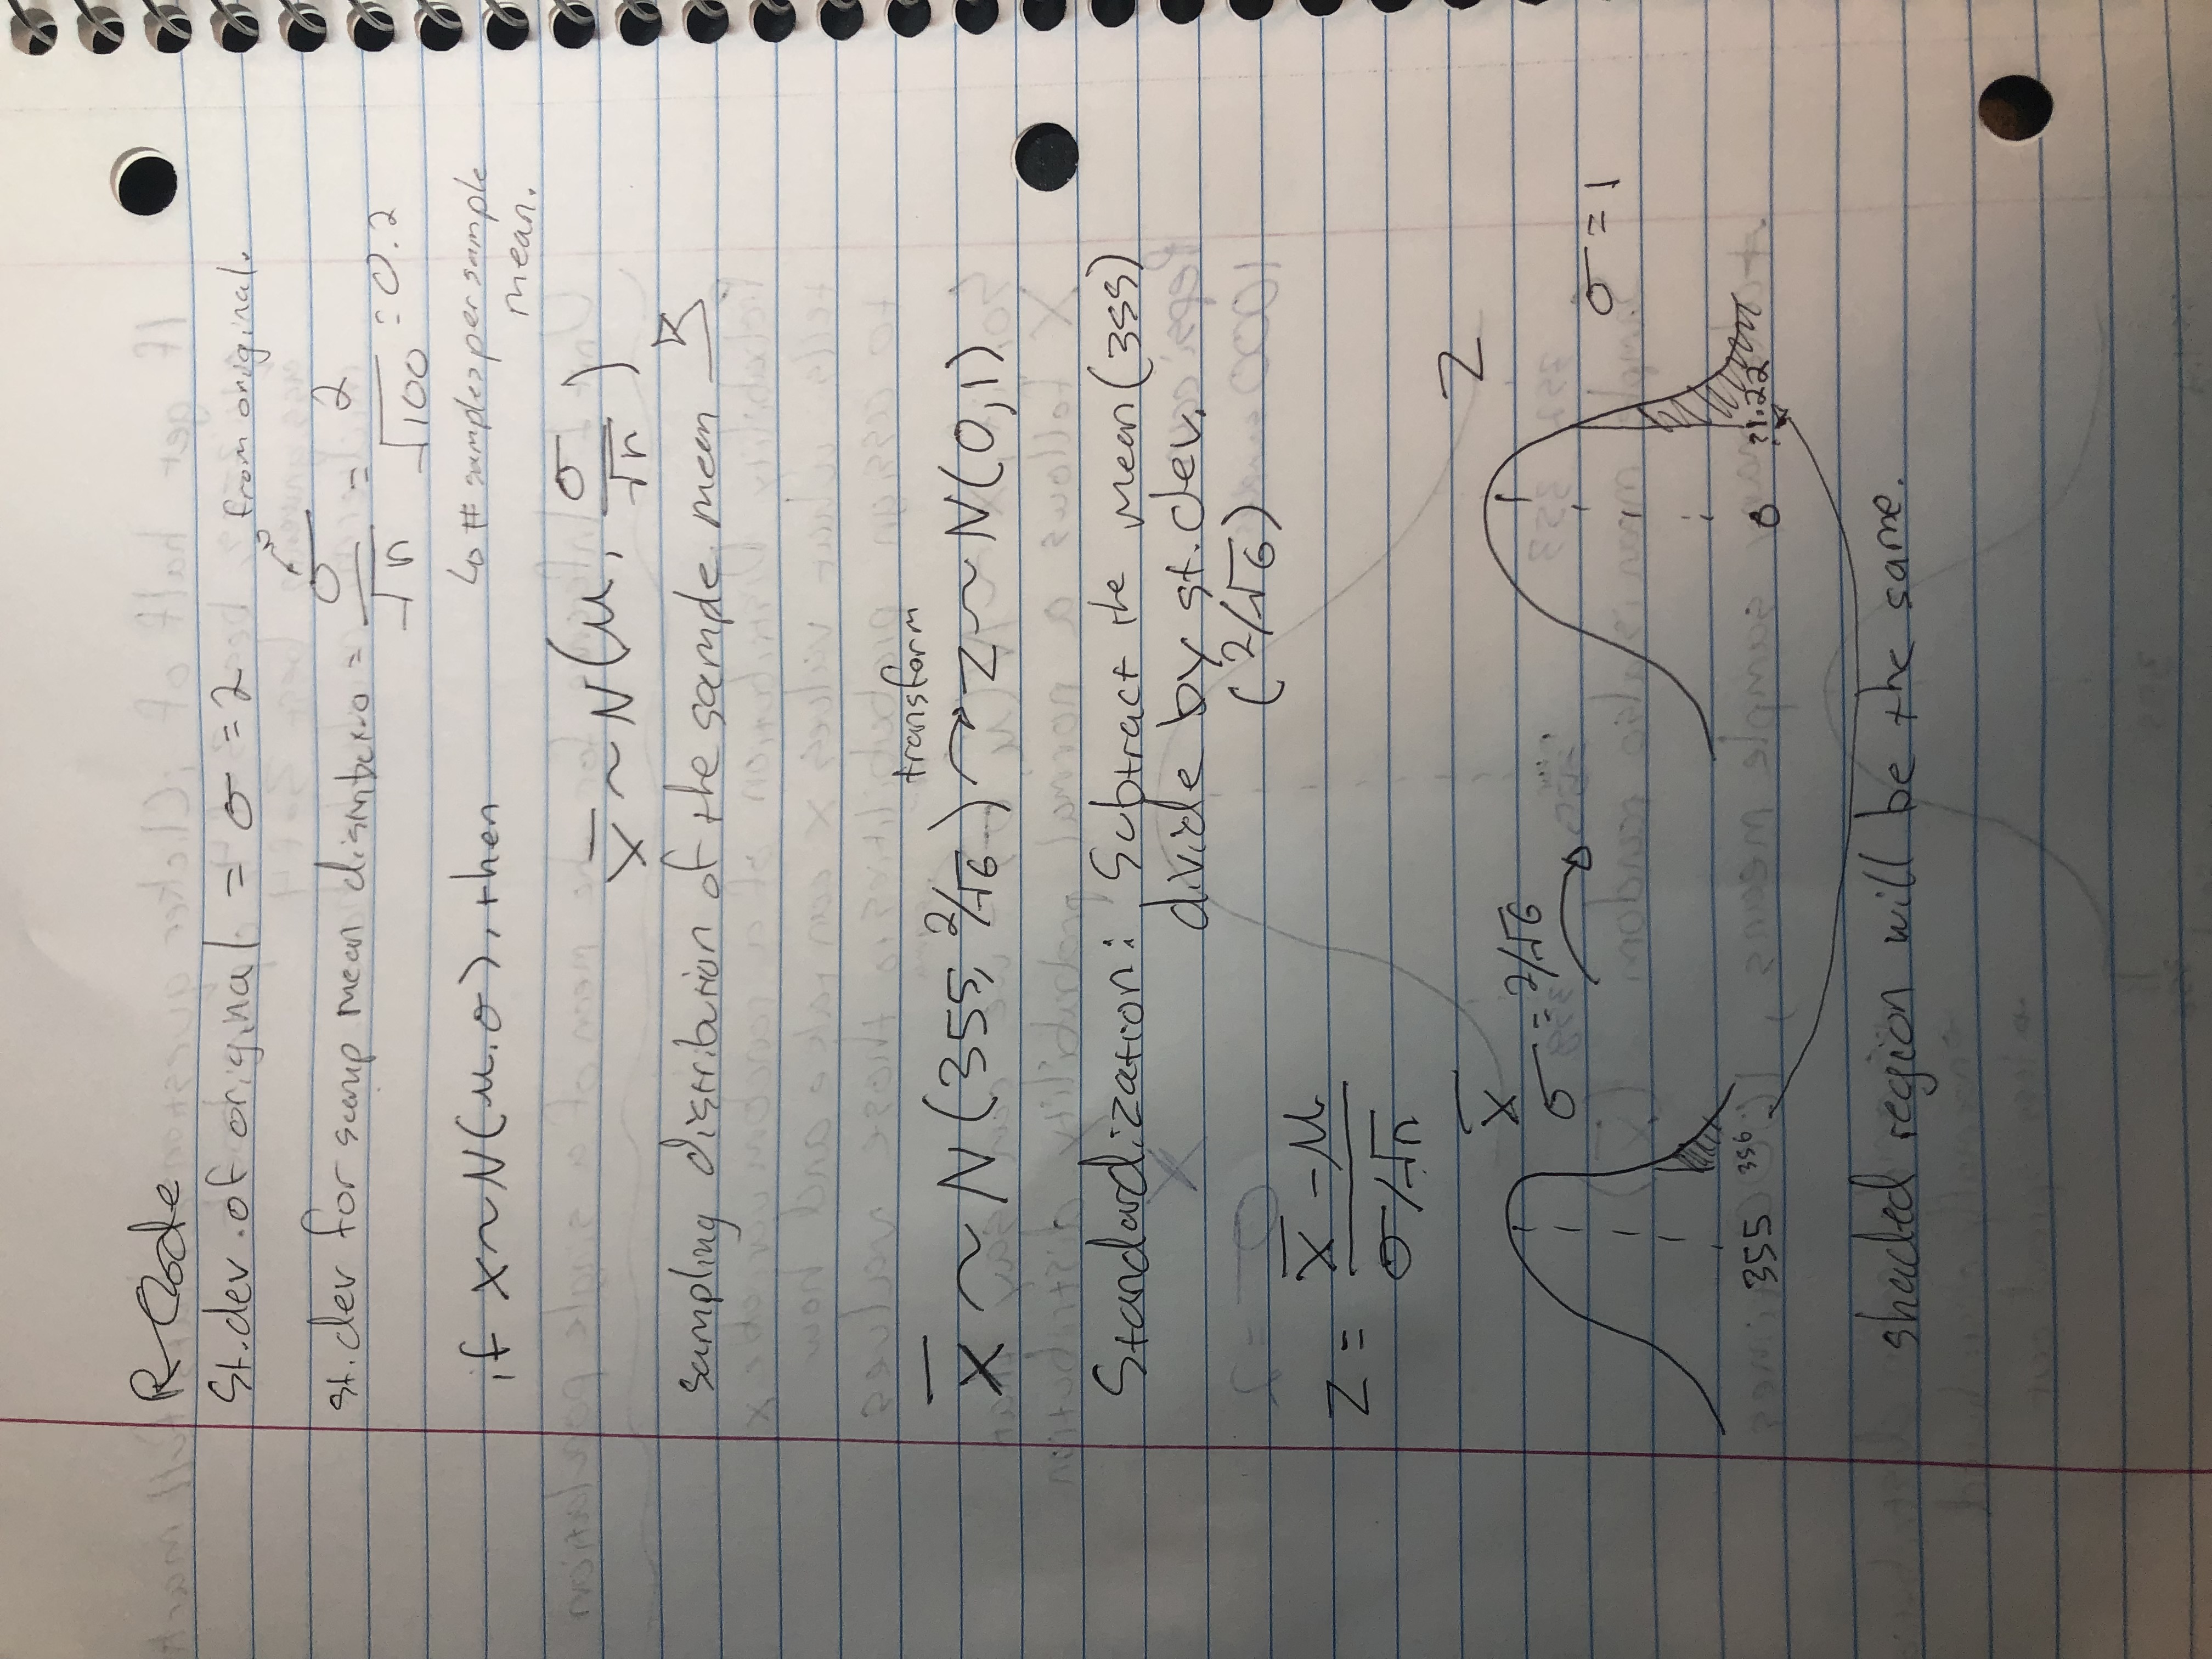 R Code
St.dev. of original = σ = 2
from original.
st. dev for samp mean = σ/√n = 2/√100 = 0.2
↳ # samples per sample
mean.
if X ~ N(μ, σ), then
X̄ ~ N(μ, σ/√n)
sampling distribution of the sample mean
transform
X̄ ~ N(355, 2/√6) → Z ~ N(0,1)
Standardization: Subtract the mean (355)
divide by st. dev.
(2/√6)
Z = (X̄ - μ)/(σ/√n)
X̄
σ = 2/√6
Z
σ = 1
355 356
0 1.22
shaded region will be the same.